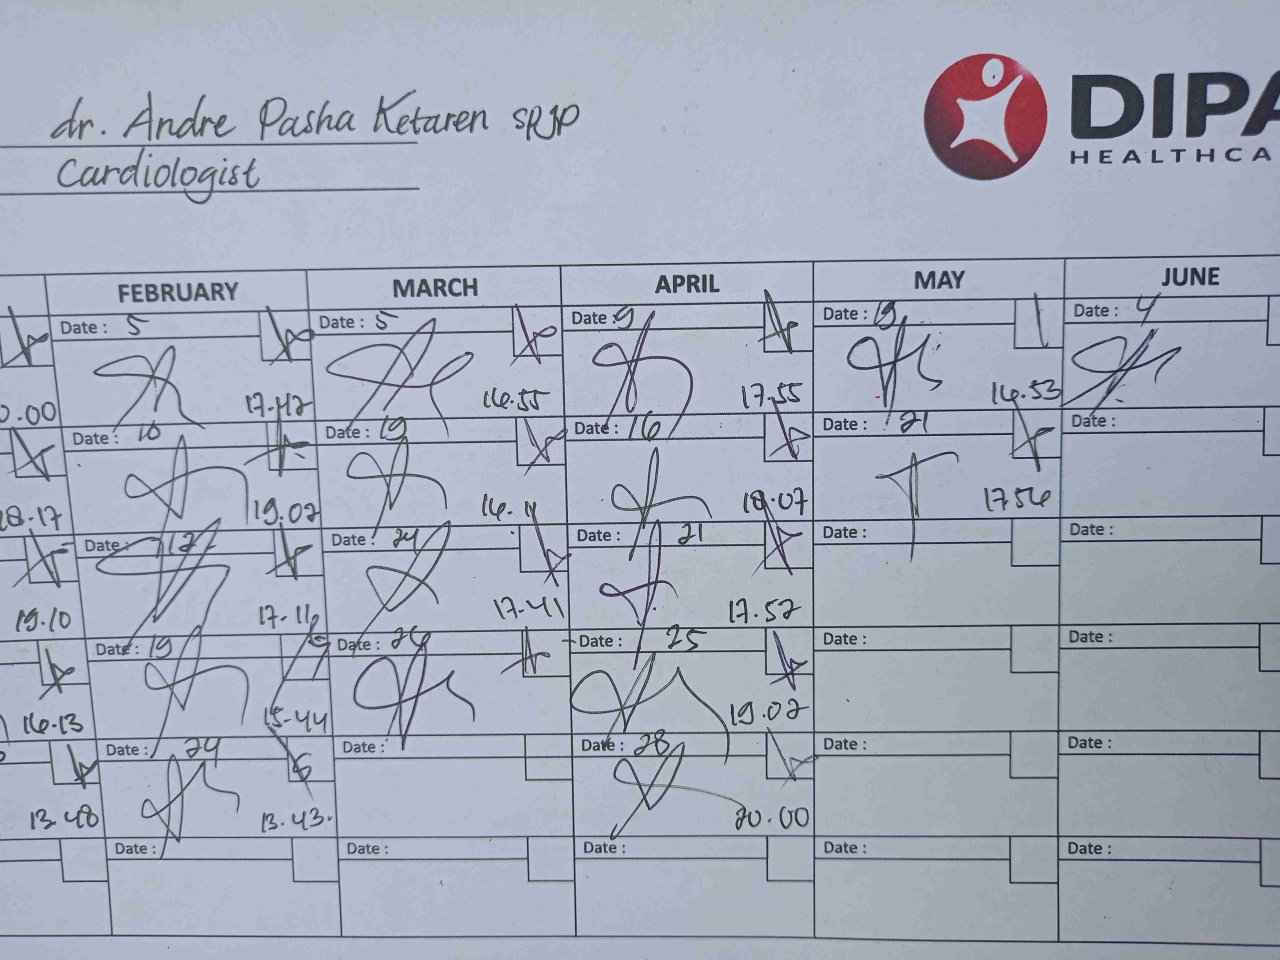 dr. Andre Pasha Ketaren SPJP
Cardiologist
DIPA
HEALTHCA
FEBRUARY MARCH APRIL MAY JUNE
Date : 5 Date : 5 Date : 9 Date : 19 Date : 4
0.00 17.42 16.55 17.55 16.53
Date : 10 Date : 19 Date : 16 Date : 21 Date :
18.17 19.02 16.11 18.07 17.56
Date : 12 Date : 24 Date : 21 Date : Date :
19.10 17.11 17.41 17.52
Date : 19 Date : 26 Date : 25 Date : Date :
16.13 15.44 19.02
Date : 24 Date : Date : 28 Date : Date :
13.48 13.43. 20.00
Date : Date : Date : Date : Date :